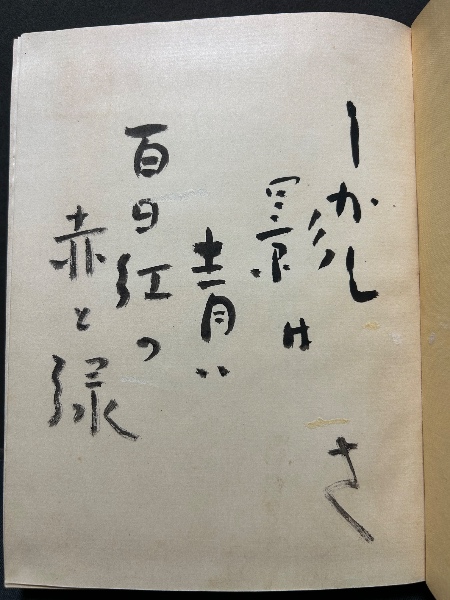 しかし
影は
青い
百日紅の
赤と緑